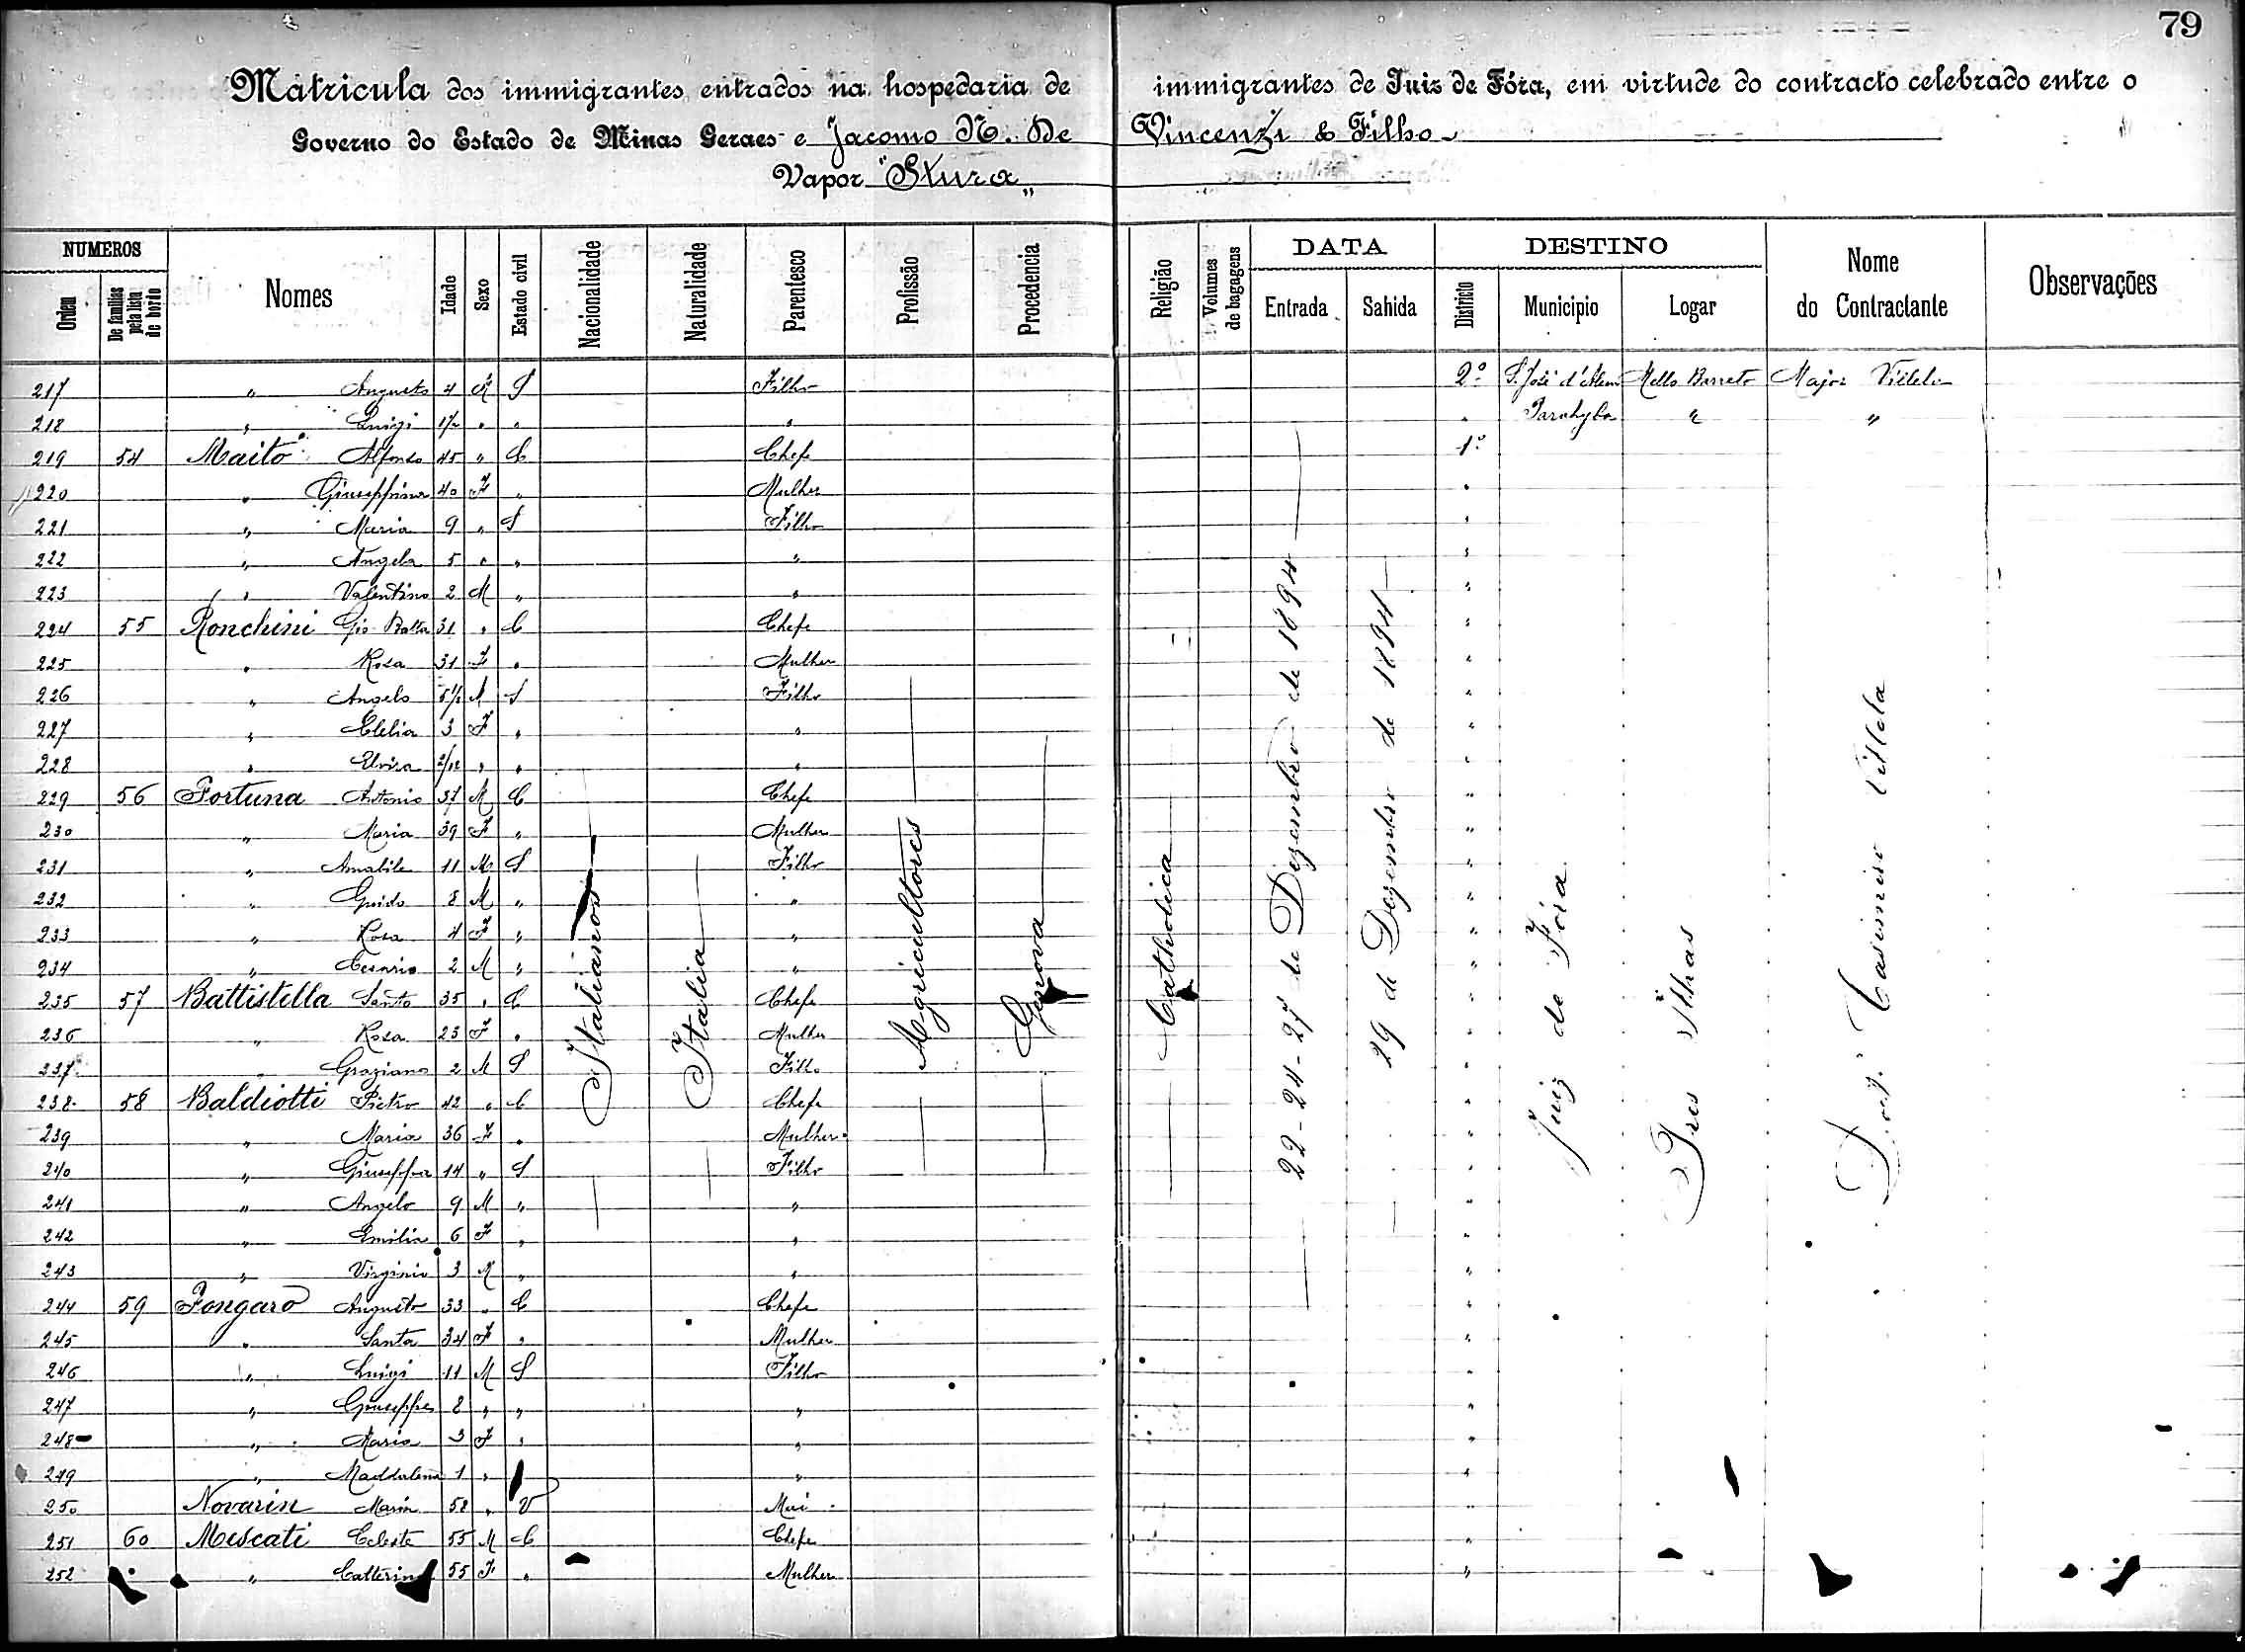 79
Matricula dos immigrantes entrados na hospedaria de immigrantes de Juiz de Fóra, em virtude do contracto celebrado entre o
Governo do Estado de Minas Geraes e Jacomo N. De Vincenzi & Filho
Vapor "Stura"
NUMEROS DATA DESTINO
Ordem De familias pela lista de bordo Nomes Idade Sexo Estado civil Nacionalidade Naturalidade Parentesco Profissão Procedencia Religião Volumes de bagagens Entrada Sahida Districto Municipio Logar Nome do Contractante Observações
217 " Augusto 4 M S Filho 2º S. José d'Alem Mello Barreto Major Villela
218 " Luigi " " " " Parahyba " "
219 54 Maito Alfonso 45 " C Chefe 1º
220 " Giuseppina 40 F " Mulher "
221 " Maria 9 " S Filho "
222 " Angela 5 " " " "
223 " Valentino 2 M " " "
224 55 Ronchini Gio Batta 31 " C Chefe "
225 " Rosa 31 F " Mulher "
226 " Angelo 5½ M S Filho "
227 " Clelia 3 F " " "
228 " Elvira 2/12 " " " "
229 56 Fortuna Antonio 37 M C Chefe "
230 " Maria 39 F " Mulher "
231 " Amabile 11 M S Filho "
232 " Guido 8 M " " "
233 " Rosa 4 F " " "
234 " Cesario 2 M " " "
235 57 Battistella Santo 35 " C Chefe "
236 " Rosa 23 F " Mulher "
237 " Graziano 2 M S Filho "
238 58 Baldiotti Pietro 42 " C Chefe "
239 " Maria 36 F " Mulher "
240 " Giuseppa 14 " S Filho "
241 " Angelo 9 M " " "
242 " Emilia 6 F " " "
243 " Virginio 3 M " " "
244 59 Fongaro Augusto 33 " C Chefe "
245 " Santa 34 F " Mulher "
246 " Luigi 11 M S Filho "
247 " Giuseppe 8 " " " "
248 " Maria 3 F " " "
249 " Maddalena 1 " " "
250 Novarin Maria 58 " V Mai "
251 60 Mescati Celeste 55 M C Chefe "
252 " Catterina 55 F " Mulher "
Italianos
Italia
Agricultores
Genova
Catholica
22-24-27 de Dezembro de 1894
29 de Dezembro de 1894
Juiz de Fóra
Tres Ilhas
Casimiro Villela